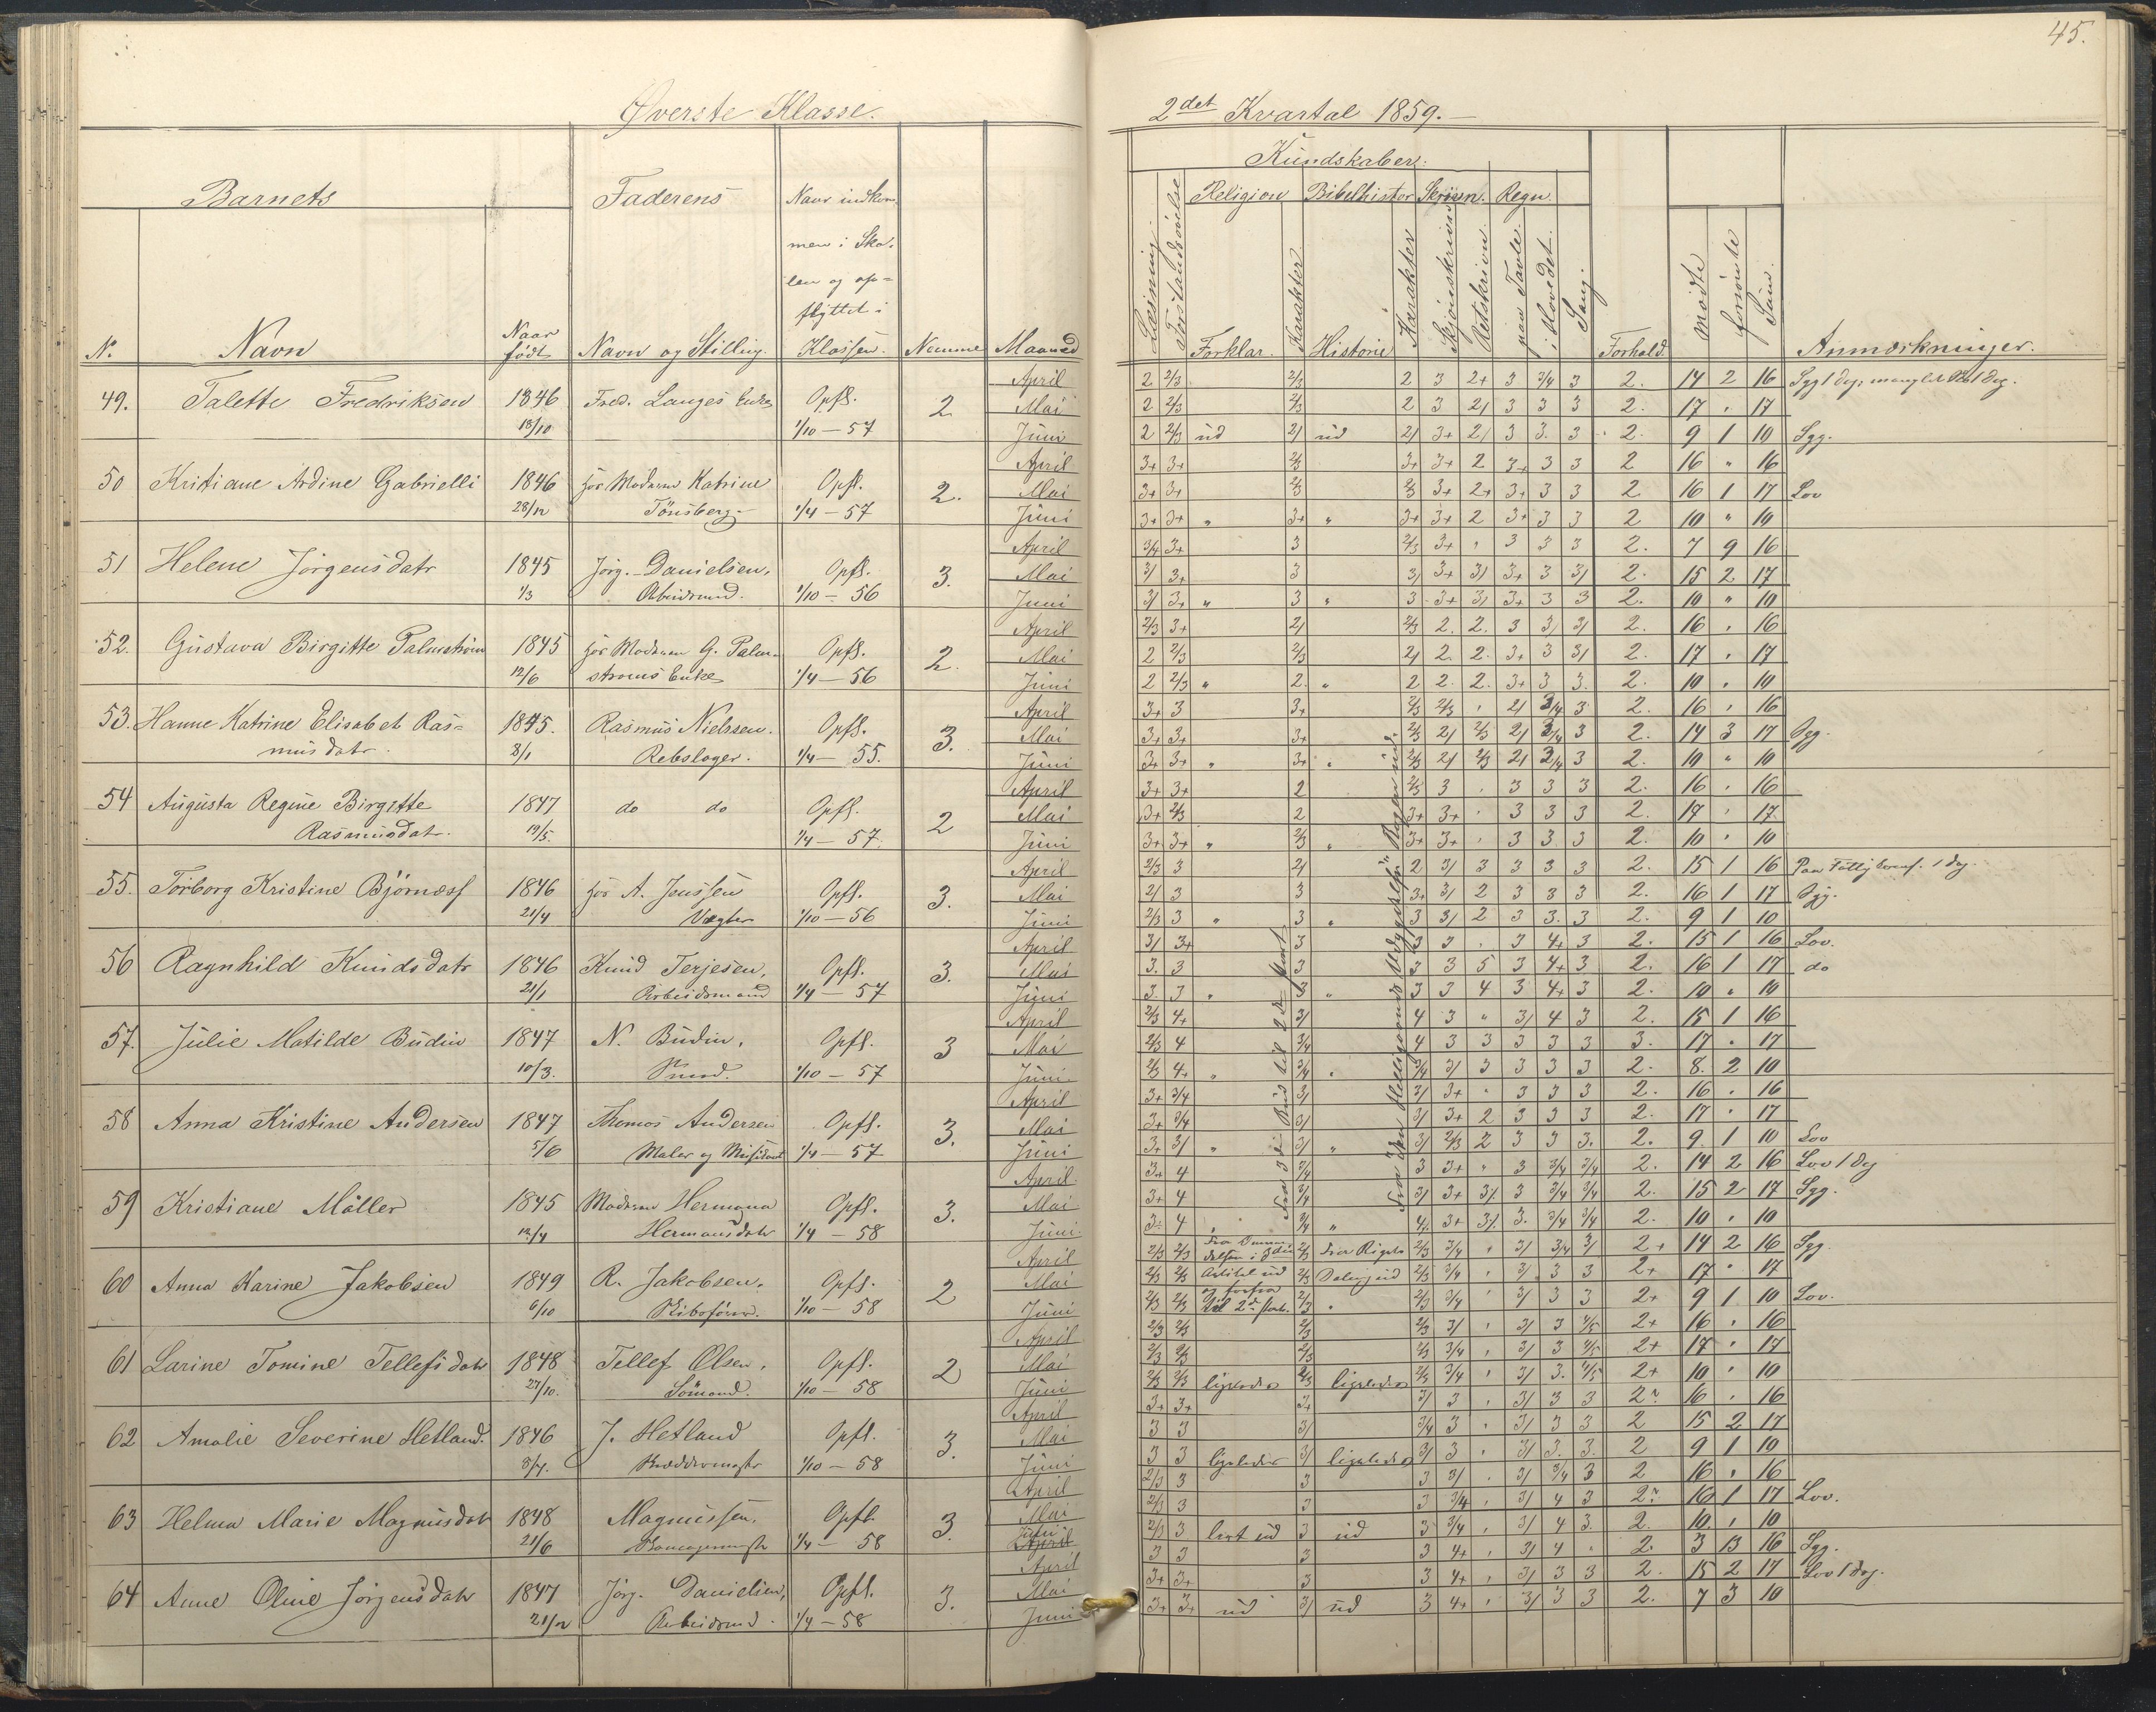 45.
Øverste Klasse.
2det Kvartal 1859.
Kundskaber.
Barnets
Faderens
Naar indkom-
men i Sko-
len og op-
flyttet i
Klassen.
Religion Bibelhistor. Skrivn. Regn.
N. Navn Naar født Navn og Stilling. Nemme Maaned
Læsning Forstandsøvelse Forklar. Karakter Historie Karakter Skjönskrivn. Retskrivn. paa Tavle. i Hovedet. Sang. Forhold. mødte forsömte Sum. Anmærkninger.
49. Talette Fredriksen 1846 18/10 Fred. Langes Enke Opfl. 1/10 – 57 2
April 2 2/3 2/3 2 3 2+ 3 3/4 3 2. 14 2 16
Mai 2 2/3 2/3 2 3 2/ 3 3 3 2. 17 " 17
Juni 2 2/3 ud 2/ ud 2/ 3+ 2/ 3 3. 3 2. 9 1 10 Syg.
50 Kristiane Ardine Gabrielli 1846 28/12 hos Moderen Katrine Tönsberg Opfl. 1/4 – 57 2.
April 3+ 3+ 2/3 3+ 3+ 2 3+ 3 3 2 16 " 16
Mai 3+ 3+ 2/3 2/3 3+ 2+ 3+ 3 3 2 16 1 17 Lov
Juni 3+ 3+ " 3+ " 3+ 3+ 2 3+ 3 3 2 10 " 10
51 Helene Jörgensdatr 1845 1/3 Jörg. Danielsen, Arbeidsmd. Opfl. 1/10 – 56 3.
April 3/4 3+ 3 2/3 3+ " 3 3 3 2. 7 9 16
Mai 3/ 3+ 3 3/ 3+ 3/ 3+ 3 3/ 2. 15 2 17
Juni 3/ 3+ " 3 " 3 3+ 3/ 3+ 3 3 2. 10 " 10
52. Gustava Birgitte Palmström 1845 12/6 hos Moderen G. Palm- ströms Enke Opfl. 1/4 – 56 2.
April 2/3 3+ 2/ 2/3 2. 2. 3 3/ 3/ 2. 16 " 16
Mai 2 2/3 2/3 2/ 2. 2. 3+ 3 3/ 2. 17 " 17
Juni 2 2/3 " 2. " 2 2. 2. 3+ 3 3. 2. 10 " 10
53. Hanne Katrine Elisabet Ras- musdatr. 1845. 8/1 Rasmus Nielssen. Rebslager. Opfl. 1/4 – 55. 3.
April 3+ 3 3+ 2/3 2/3 " 2/ 3/4 3 2. 16 " 16
Mai 3+ 3+ 3+ 2/3 2/ 2/3 2/ 3/4 3 2. 14 3 17 Syg.
Juni 3+ 3+ " 3+ " 2/3 2/ 2/3 2/ 3/4 3 2. 10 " 10
54 Augusta Regine Birgitte Rasmusdatr. 1847 19/5. do do Opfl. 1/4 – 57. 2
April 3+ 3+ 2 2/3 3 " 3 3 3 2. 16 " 16
Mai 3+ 2/3 2 3+ 3+ " 3 3 3 2. 17 " 17.
Juni 3+ 3+ " 2/3 " 3+ 3+ " 3 3. 3 2. 10 " 10
55. Torborg Kristine Björnæss 1846 21/4 hos A. Jenssen Vægter Opfl. 1/10 – 56 3.
April 2/3 3 2/ 2 3/ 3 3 3 3 2. 15 1 16
Mai 2/ 3 3 3+ 3/ 2 3 3 3 2. 16 1 17 Syg.
Juni 2/3 3 " 3 " 3 3/ 2 3 3. 3 2. 9 1 10
56 Ragnhild Knudsdatr 1846 21/1 Knud Terjesen, Arbeidsmand Opfl. 1/4 – 57 3.
April 3/ 3+ 3 3 3 " 3 4+ 3 2. 15 1 16 Lov.
Mai 3. 3 3 3 3 5 3 4+ 3 2. 16 1 17 do
Juni 3. 3 " 3 " 3 3 4 3 4+ 3 2. 10 " 10
57. Julie Matilde Budin 1847 10/3. N. Budin, Opfl. 1/10 – 57 3
April 2/3 4+ 3/ 4 3 " 3/ 4 3 2. 15 1 16
Mai 2/3 4 3/4 4 3 3 3 3 3 3. 17 " 17
Juni 2/3 4+ " 3/4 " 3/4 3/ 3 3 3 3 2. 8. 2 10
58 Anna Kristine Andersen 1847 5/6 Thomas Andersen Maler og Opfl. 1/4 – 57 3.
April 3+ 3/4 3/ 3/ 3+ " 3 3 3 2. 16 " 16
Mai 3+ 3/4 3/ 3/ 3+ 2 3 3 3 2. 17 " 17
Juni 3+ 3/ " 3/ " 3/ 2/3 2 3 3 3. 2. 9 1 10 Lov
59 Kristiane Möller 1845 12/4 Moderen Hermana Hermansdatr Opfl. 1/4 – 58 3.
April 3+ 4 3/4 3 3+ " 3 3/4 3/4 2. 14 2 16 Lov 1 Dag
Mai 3+ 4 3/4 3/ 3+ 3/ 3 3/4 3/4 2. 15 2 17 Syg.
Juni 3 4 " 3/4 " 4/ 3+ 3/ 3. 3/4 3/4 2. 10 " 10
60 Anna Karine Jakobsen 1849 6/10 R. Jakobsen. Opfl. 1/10 – 58 2
April 2/3 2/3 i 3die 2/3 Fra Rigets 2/3 3/4 " 3/ 3/4 3/ 2+ 14 2 16 Syg.
Mai 2/3 2/3 Artikel ud 2/3 Deling ud 2/3 3/4 " 3/ 3 3 2+ 17 " 17
Juni 2/3 2/3 og forfra til 2d Part. 2/3 " 2/3 3/4 " 3/ 3 3 2+ 9 1 10 Lov.
61 Larine Tomine Tellefsdatr 1848 27/10. Tellef Olsen, Sömand. Opfl. 1/10 – 58 2
April 2/3 2/3 2/3 2/3 3/ " 3/ 3 4/5 2+ 16 " 16
Mai 2/3 2/3 2/3 2/3 3/4 " 3/ 3 4/5 2+ 17 " 17
Juni 2/3 2/3 ligeledes 2/3 ligeledes 2/3 3/4 " 3/ 3. 4/5 2+ 10 " 10
62 Amalie Severine Hetland. 1846 8/7. J. Hetland Opfl. 1/10 – 58 3.
April 3+ 3+ 3+ 3/ 3 " 3/ 3 3 2 16 " 16
Mai 3 3 3/ 3/4 3 " 3/ 3 3 2 15 2 17
Juni 3 3 ligeledes 3/ ligeledes 3/ 3 " 3/ 3. 3. 2 9 1 10
63 Helma Marie Magnusdatr 1848 21/6 Magnussen, Opfl. 1/4 – 58 3.
April 2/3 3 3 3 3/ " 3/ 3/4 3 2 16 " 16
Mai 2/3 3 3 3 3/4 " 3/ 4 3 2 16 1 17 Lov.
Juni 2/3 3 ud 3 ud 3 3/4 " 3/ 4 3. 2. 10 " 10
64 Anne Oline Jörgensdatr 1847 21/12 Jörg. Danielsen, Arbeidsmd. Opfl. 1/4 – 58 3.
April 3 3 3 3 4+ " 3/ 4 " 2. 3 13 16 Syg.
Mai 3+ 3+ 3 3 4+ " 3/ 3 3 2. 15 2 17 Lov 1 Dag.
Juni 3+ 3+ ud 3/ ud 3 4+ " 3/ 3 3 2. 7 3 10